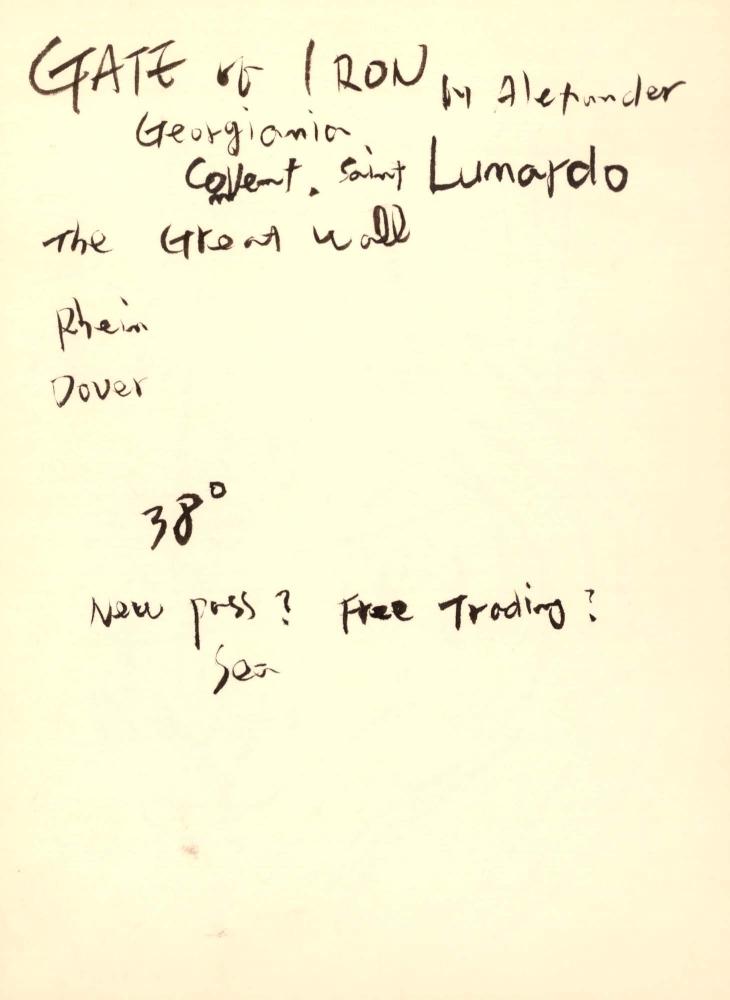 GATE of IRON by Alexander
Georgiania
Covent. Saint Lumardo
The Great Wall
Rhein
Dover
38°
New pass? Free Trading?
Sea